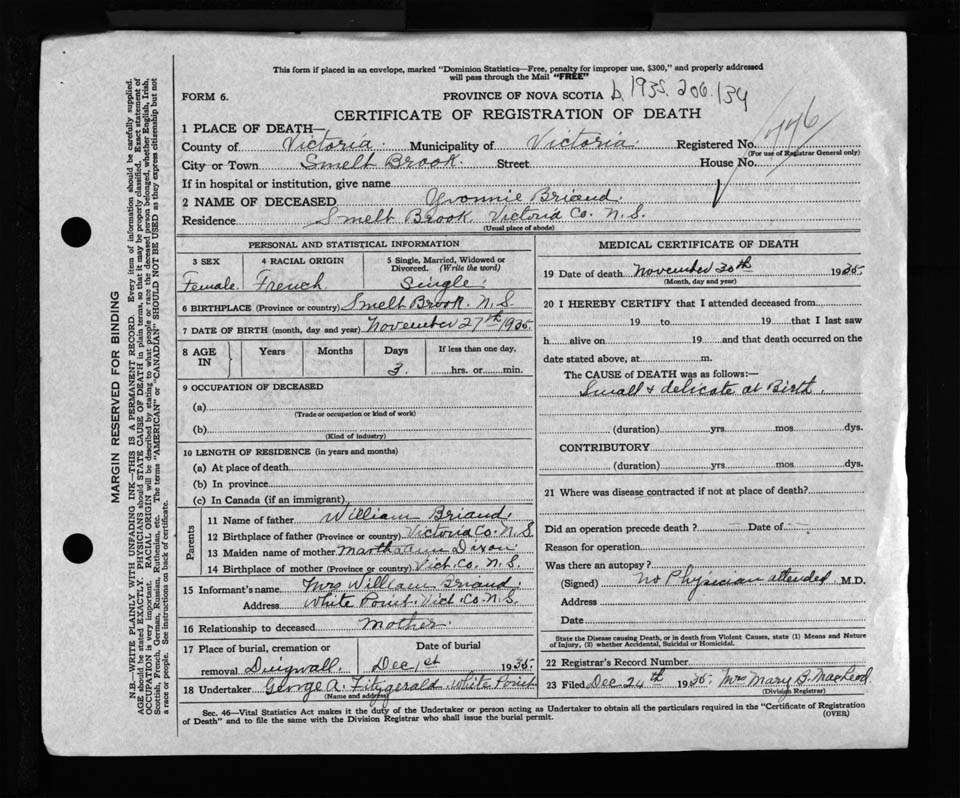 This form if placed in an envelope, marked "Dominion Statistics—Free, penalty for improper use, $300," and properly addressed
will pass through the Mail "FREE"
FORM 6. PROVINCE OF NOVA SCOTIA D. 1935. 206. 134
CERTIFICATE OF REGISTRATION OF DEATH
1 PLACE OF DEATH—
County of Victoria. Municipality of Victoria. Registered No. 1446
(For use of Registrar General only)
City or Town Smelt Brook. Street House No.
If in hospital or institution, give name
2 NAME OF DECEASED Yvonnie Briand.
Residence Smelt Brook Victoria Co. N.S.
(Usual place of abode)
PERSONAL AND STATISTICAL INFORMATION
3 SEX 4 RACIAL ORIGIN 5 Single, Married, Widowed or Divorced. (Write the word)
Female. French Single.
6 BIRTHPLACE (Province or country) Smelt Brook. N.S.
7 DATE OF BIRTH (month, day and year) November 27th 1935.
8 AGE IN Years Months Days If less than one day,
3. hrs. or min.
9 OCCUPATION OF DECEASED
(a)
(Trade or occupation or kind of work)
(b)
(Kind of industry)
10 LENGTH OF RESIDENCE (in years and months)
(a) At place of death
(b) In province
(c) In Canada (if an immigrant)
Parents
11 Name of father William Briand.
12 Birthplace of father (Province or country) Victoria Co. N.S.
13 Maiden name of mother Martha Ann Dixon
14 Birthplace of mother (Province or country) Vict. Co. N.S.
15 Informant's name Mrs William Briand.
Address White Point. Vict. Co. N.S.
16 Relationship to deceased Mother.
17 Place of burial, cremation or removal Dingwall. Date of burial Dec 1st 1935.
18 Undertaker George A. Fitzgerald. White Point
(Name and address)
MEDICAL CERTIFICATE OF DEATH
19 Date of death November 30th 1935.
(Month, day and year)
20 I HEREBY CERTIFY that I attended deceased from
19 to 19 that I last saw
h alive on 19 and that death occurred on the
date stated above, at m.
The CAUSE of DEATH was as follows:—
Small & delicate at Birth.
(duration) yrs. mos. dys.
CONTRIBUTORY
(duration) yrs. mos. dys.
21 Where was disease contracted if not at place of death?
Did an operation precede death? — Date of —
Reason for operation
Was there an autopsy?
(Signed) No Physician attended M.D.
Address
Date
State the Disease causing Death, or in death from Violent Causes, state (1) Means and Nature
of Injury, (2) whether Accidental, Suicidal or Homicidal.
22 Registrar's Record Number
23 Filed Dec 24th 1935. Mrs Mary B. MacLeod
(Division Registrar)
Sec. 46—Vital Statistics Act makes it the duty of the Undertaker or person acting as Undertaker to obtain all the particulars required in the "Certificate of Registration
of Death" and to file the same with the Division Registrar who shall issue the burial permit. (OVER)
MARGIN RESERVED FOR BINDING
N.B.—WRITE PLAINLY WITH UNFADING INK—THIS IS A PERMANENT RECORD. Every item of information should be carefully supplied.
AGE should be stated EXACTLY. PHYSICIANS should STATE CAUSE OF DEATH in plain terms, so that it may be properly classified. Exact statement of
OCCUPATION is very important. RACIAL ORIGIN will be described by stating to what people or race the deceased person belonged, whether English, Irish,
Scottish, French, German, Russian, Ruthenian, etc. The terms "AMERICAN" or "CANADIAN" SHOULD NOT BE USED as they express citizenship but not
a race or people. See instructions on back of certificate.